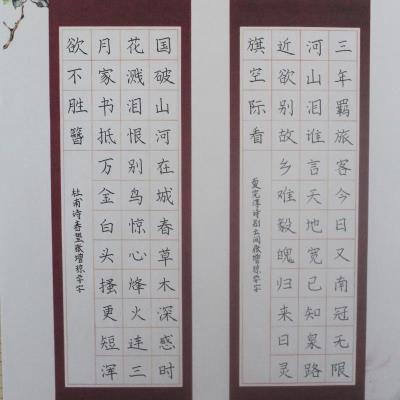 三年羁旅客今日又南冠无限
河山泪谁言天地宽已知泉路
近欲别故乡难毅魄归来日灵
旗空际看
夏完淳诗别云间张增琼学字
国破山河在城春草木深惑时
花溅泪恨别鸟惊心烽火连三
月家书抵万金白头搔更短浑
欲不胜簪
杜甫诗春望张增琼学字